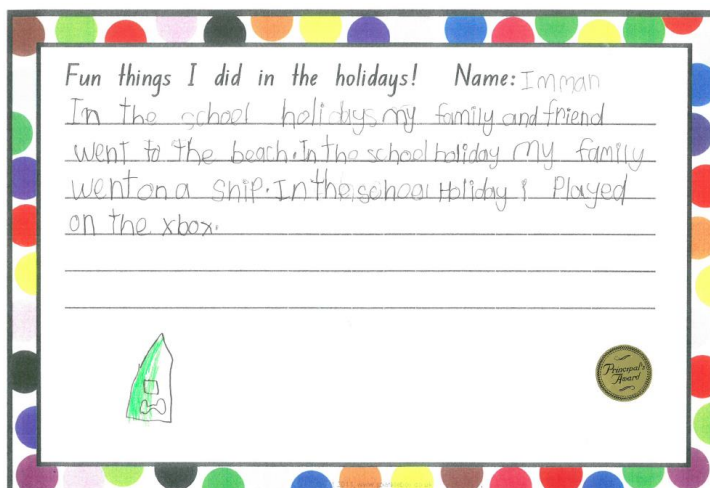 Fun things I did in the holidays! Name: Imman
In the school holidays my family and friend
went to the beach. In the school holiday my family
went on a ship. In the school Holiday i Played
on the xbox.
Principal's
Award